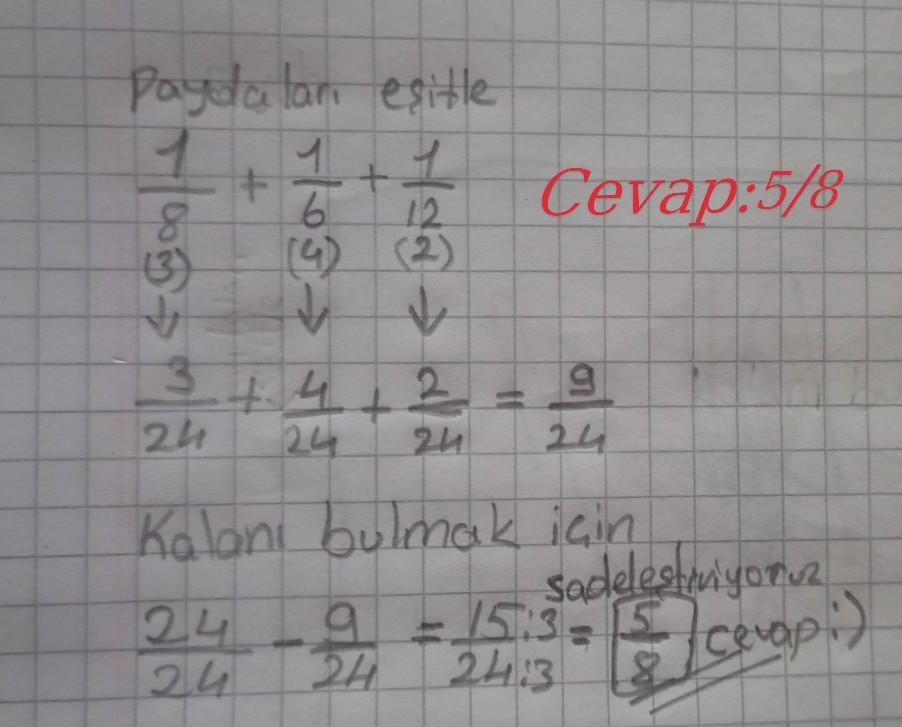 Paydaları eşitle
1/8 + 1/6 + 1/12
Cevap:5/8
(3) (4) (2)
↓ ↓ ↓
3/24 + 4/24 + 2/24 = 9/24
Kalanı bulmak için
sadeleştiriyoruz
24/24 - 9/24 = 15:3/24:3 = 5/8 cevap :)